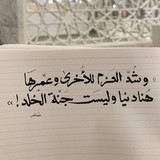 وشُدَّ العزم للأخرى وعمّرها
هنا دنيا وليست جنة الخلد! »